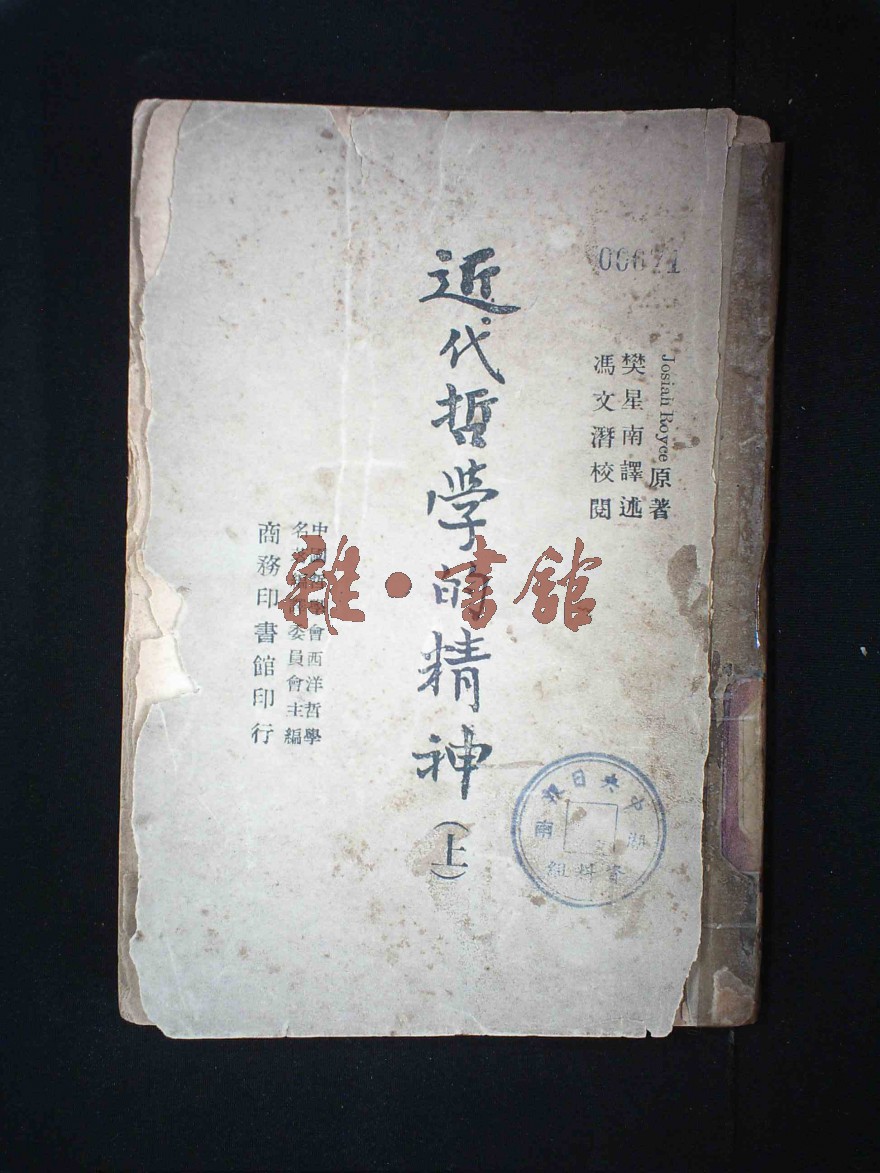 00671
Josiah Royce原著
樊星南譯述
馮文潛校閱
近代哲学的精神(上)
中國哲學會西洋哲學
名著編譯委員會主編
商務印書館印行
雜·書館
湖南
資料組